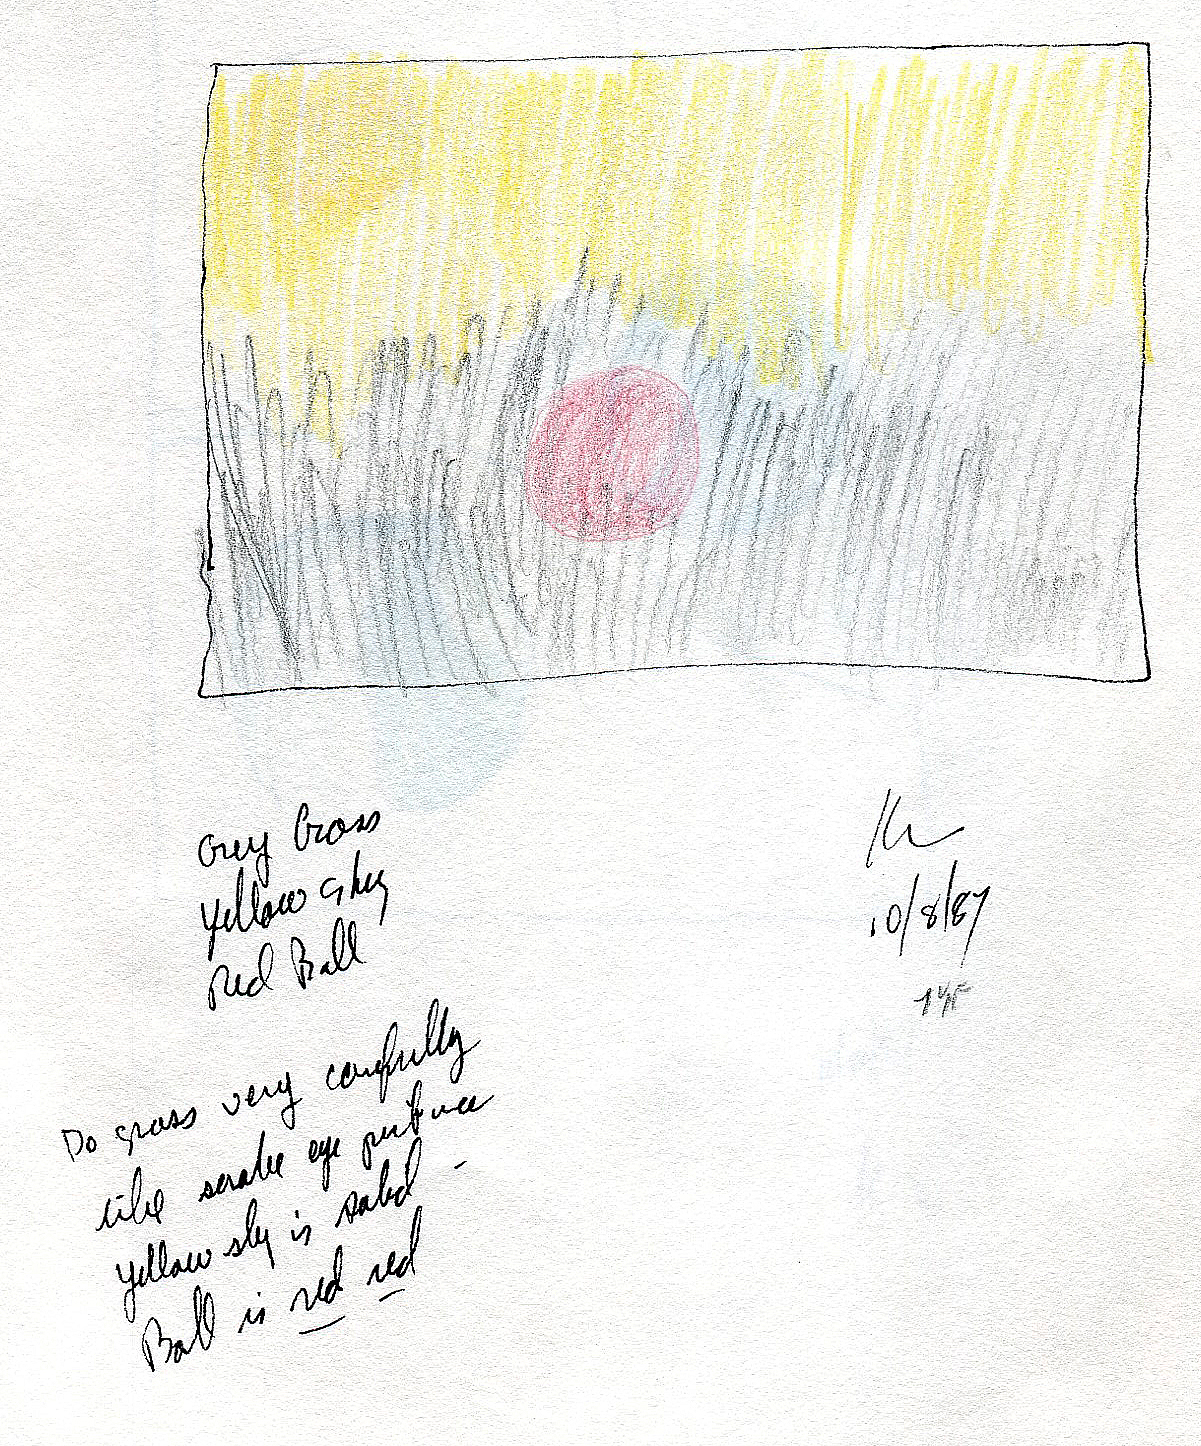 Grey Grass
Yellow Sky
Red Ball
Do grass very carefully
like snake eye picture
Yellow sky is solid -
Ball is red red
10/8/87